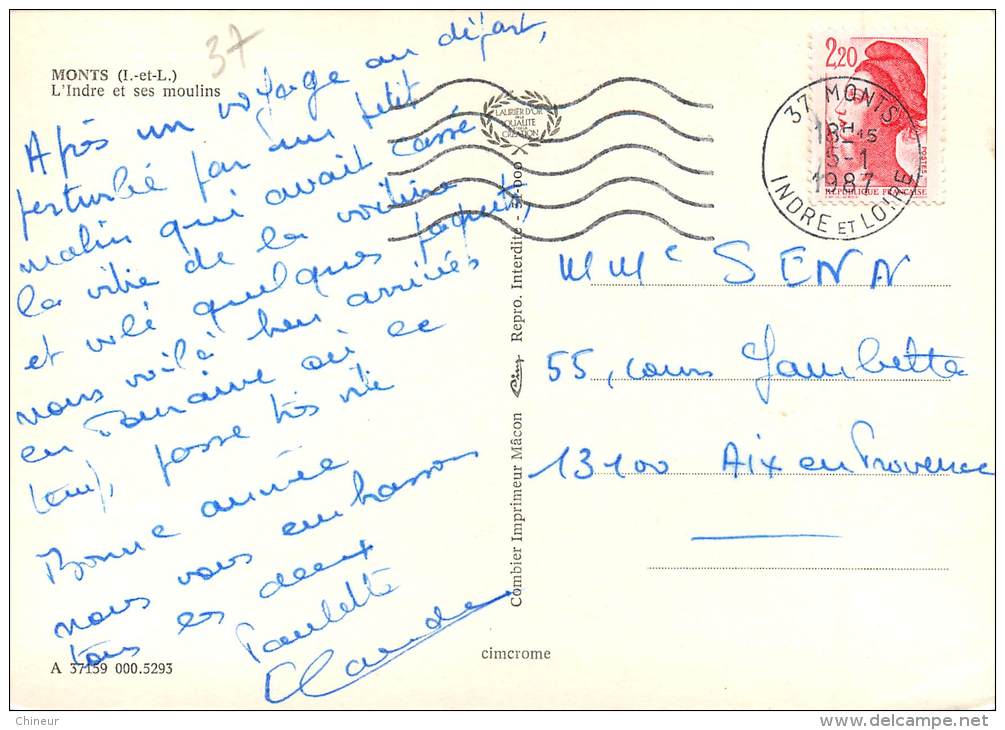 37
MONTS (I.-et-L.)
L'Indre et ses moulins
Après un voyage au départ,
perturbé par un petit
malin qui avait cassé
la vitre de la voiture
et volé quelques paquets,
nous voilà bien arrivés
en Touraine où ce
temps passe très vite
Bonne année
nous vous embrassons
tous les deux
Paulette
Claude
A 37159 000.5293
cimcrome
Combier Imprimeur Mâcon Repro. Interdite
LAURIER D'OR
DE LA
QUALITE
CREATION
2,20
POSTES
REPUBLIQUE FRANÇAISE
37 MONTS
18H45
5-1
1987
INDRE ET LOIRE
M Mme SENN
55, cours Gambetta
13100 Aix en Provence
Chineur
delcampe.net